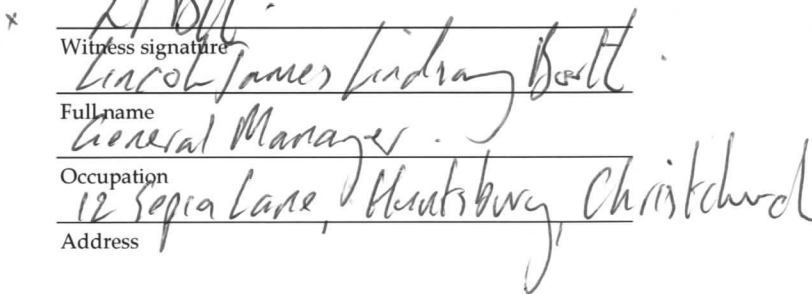 x
Witness signature
Lincoln James Lindsay
Full name
General Manager.
Occupation
12 Sepia Lane, Huntsbury, Christchurch
Address